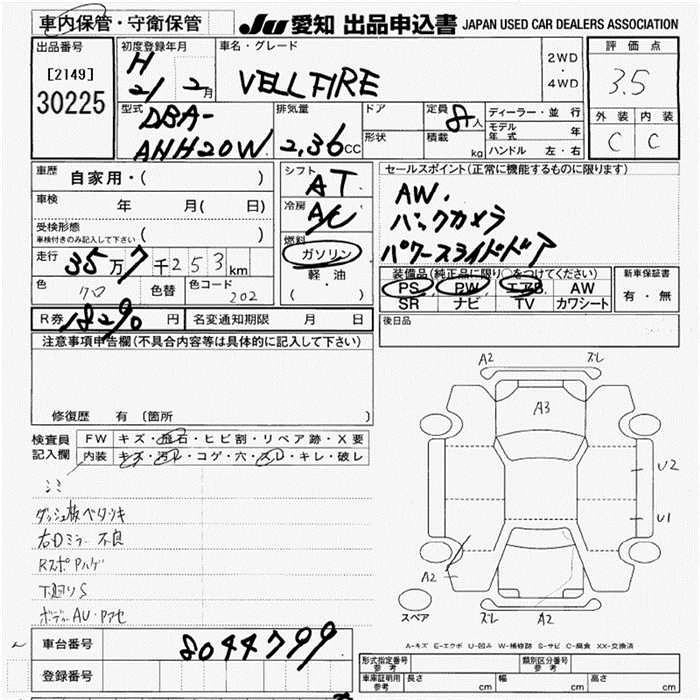 車内保管・守衛保管
JU 愛知 出品申込書 JAPAN USED CAR DEALERS ASSOCIATION
出品番号
[2149]
30225
初度登録年月
H
21 2月
車名・グレード
VELLFIRE
2WD
・
4WD
評価点
3.5
外装 内装
C C
型式
DBA-
ANH20W
排気量
2,36cc
ドア
形状
定員 8人
積載 kg
ディーラー・並行
モデル年式 年
ハンドル 左・右
車歴 自家用・( )
車検 年 月( 日)
受検形態
車検付きのみ記入して下さい ( )
走行 35万7千253km
色 クロ 色替 色コード 202
シフト AT
冷房 A/C
燃料
ガソリン
軽油
( )
セールスポイント(正常に機能するものに限ります)
AW.
バックカメラ
パワースライドドア
装備品(純正品に限り○をつけてください)
PS PW エアB AW
SR ナビ TV カワシート
新車保証書
有・無
R券 18290円 名変通知期限 月 日
後日品
注意事項申告欄(不具合内容等は具体的に記入して下さい)
修復歴 有〔箇所
検査員記入欄
FW キズ・飛石・ヒビ割・リペア跡・X要
内装 キズ・汚レ・コゲ・穴・スレ・キレ・破レ
シミ
ダッシュ板ベタツキ
右Dミラー不良
RスポPハゲ
下廻りS
ボディーAU・
車台番号 8044799
登録番号
A2 スレ
A3
U2
U1
A2
スペア
スレ A2
A-キズ E-エクボ U-凹み W-補修跡 S-サビ C-腐食 XX-交換済
形式指定番号参考 類別区分番号参考
車庫証明用参考 長さ cm 幅 cm 高さ cm